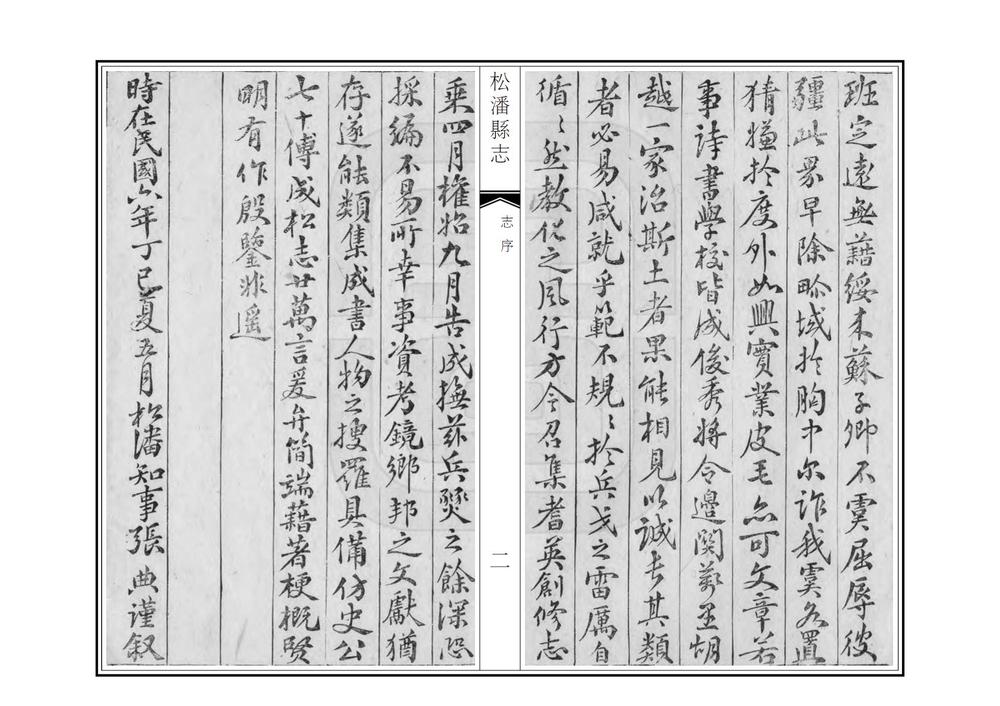 班定遠無藉綏來蘇子卿不虞屈辱彼
疆此界早除畛域於胸中尔詐我虞各置
猜嫌於度外如興實業皮毛亦可文章若
事詩書學校皆成俊秀將令邊関萬里胡
越一家治斯土者果能相見以誠长其類
者必易咸就乎範不規〻於兵戈之雷厲自
循〻然教化之風行方今召集耆英創修志
松潘縣志
志序
二
乘四月権始九月告成撫茲兵燹之餘深恐
採編不易所幸事資考鏡鄉邦之文獻猶
存遂能類集成書人物之搜羅具備仿史公
七十傳成松志廿萬言爰弁簡端藉著梗概賢
明有作殷鑒非遥
時在民國六年丁巳夏五月松潘知事張典谨叙